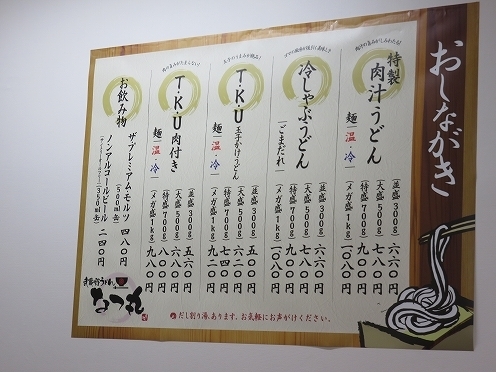 おしながき
特製
肉汁うどん
麺
冷
並盛 300g
六六〇円
大盛 500g
七八〇円
特盛 700g
九〇〇円
メガ盛 1kg
一〇八〇円
冷しゃぶうどん
(ごまだれ)
麺
冷
並盛 300g
六六〇円
大盛 500g
七八〇円
特盛 700g
九〇〇円
メガ盛 1kg
一〇八〇円
T・K・U
玉子かけうどん
麺 温・冷
並盛 300g
大盛 500g
特盛 700g
七四〇円
メガ盛 1kg
T・K・U肉付き
麺 温・冷
並盛 300g
五六〇円
大盛 500g
六八〇円
特盛 700g
八〇〇円
メガ盛 1kg
九八〇円
お飲み物
ザ・プレミアム・モルツ
(500ml缶)
四八〇円
ノンアルコールビール
(350ml缶)
二四〇円
武蔵野うどん
なつ丸
だし割り湯、あります。お気軽にお声がけください。